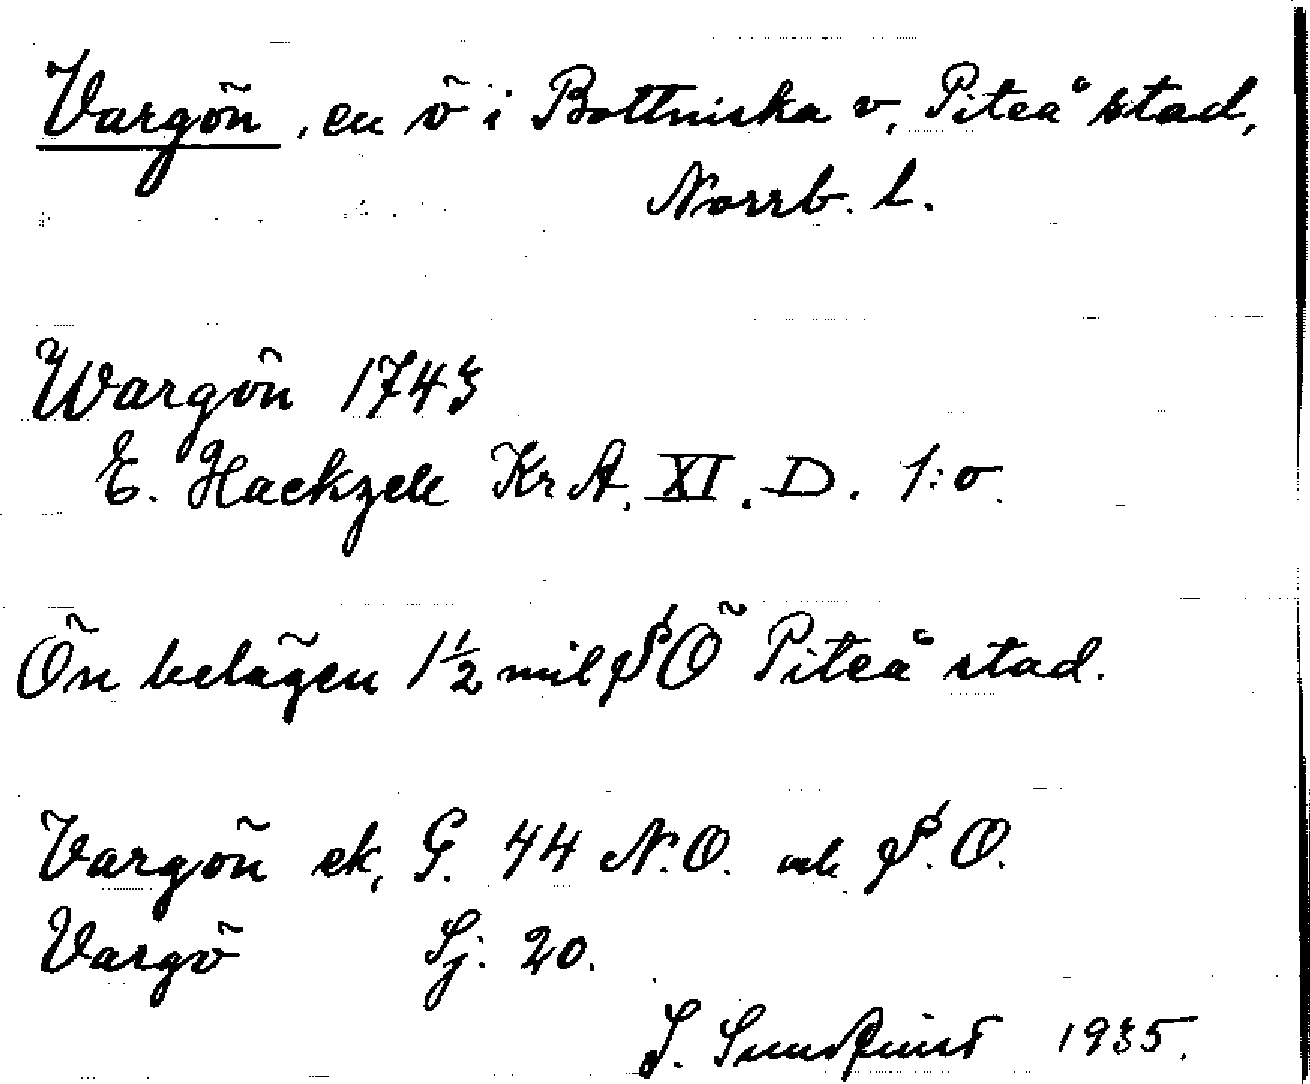 Vargön, en ö i Bottniska v, Piteå stad,
Norrb. l.
Wargön 1743
E. Hackzell Kr A. XI. D. 1:o.
Ön belägen 1½ mil SÖ Piteå stad.
Vargön ek, G. 44 N.O. och S.O.
Vargö Sj. 20.
S. Sundquist 1935.